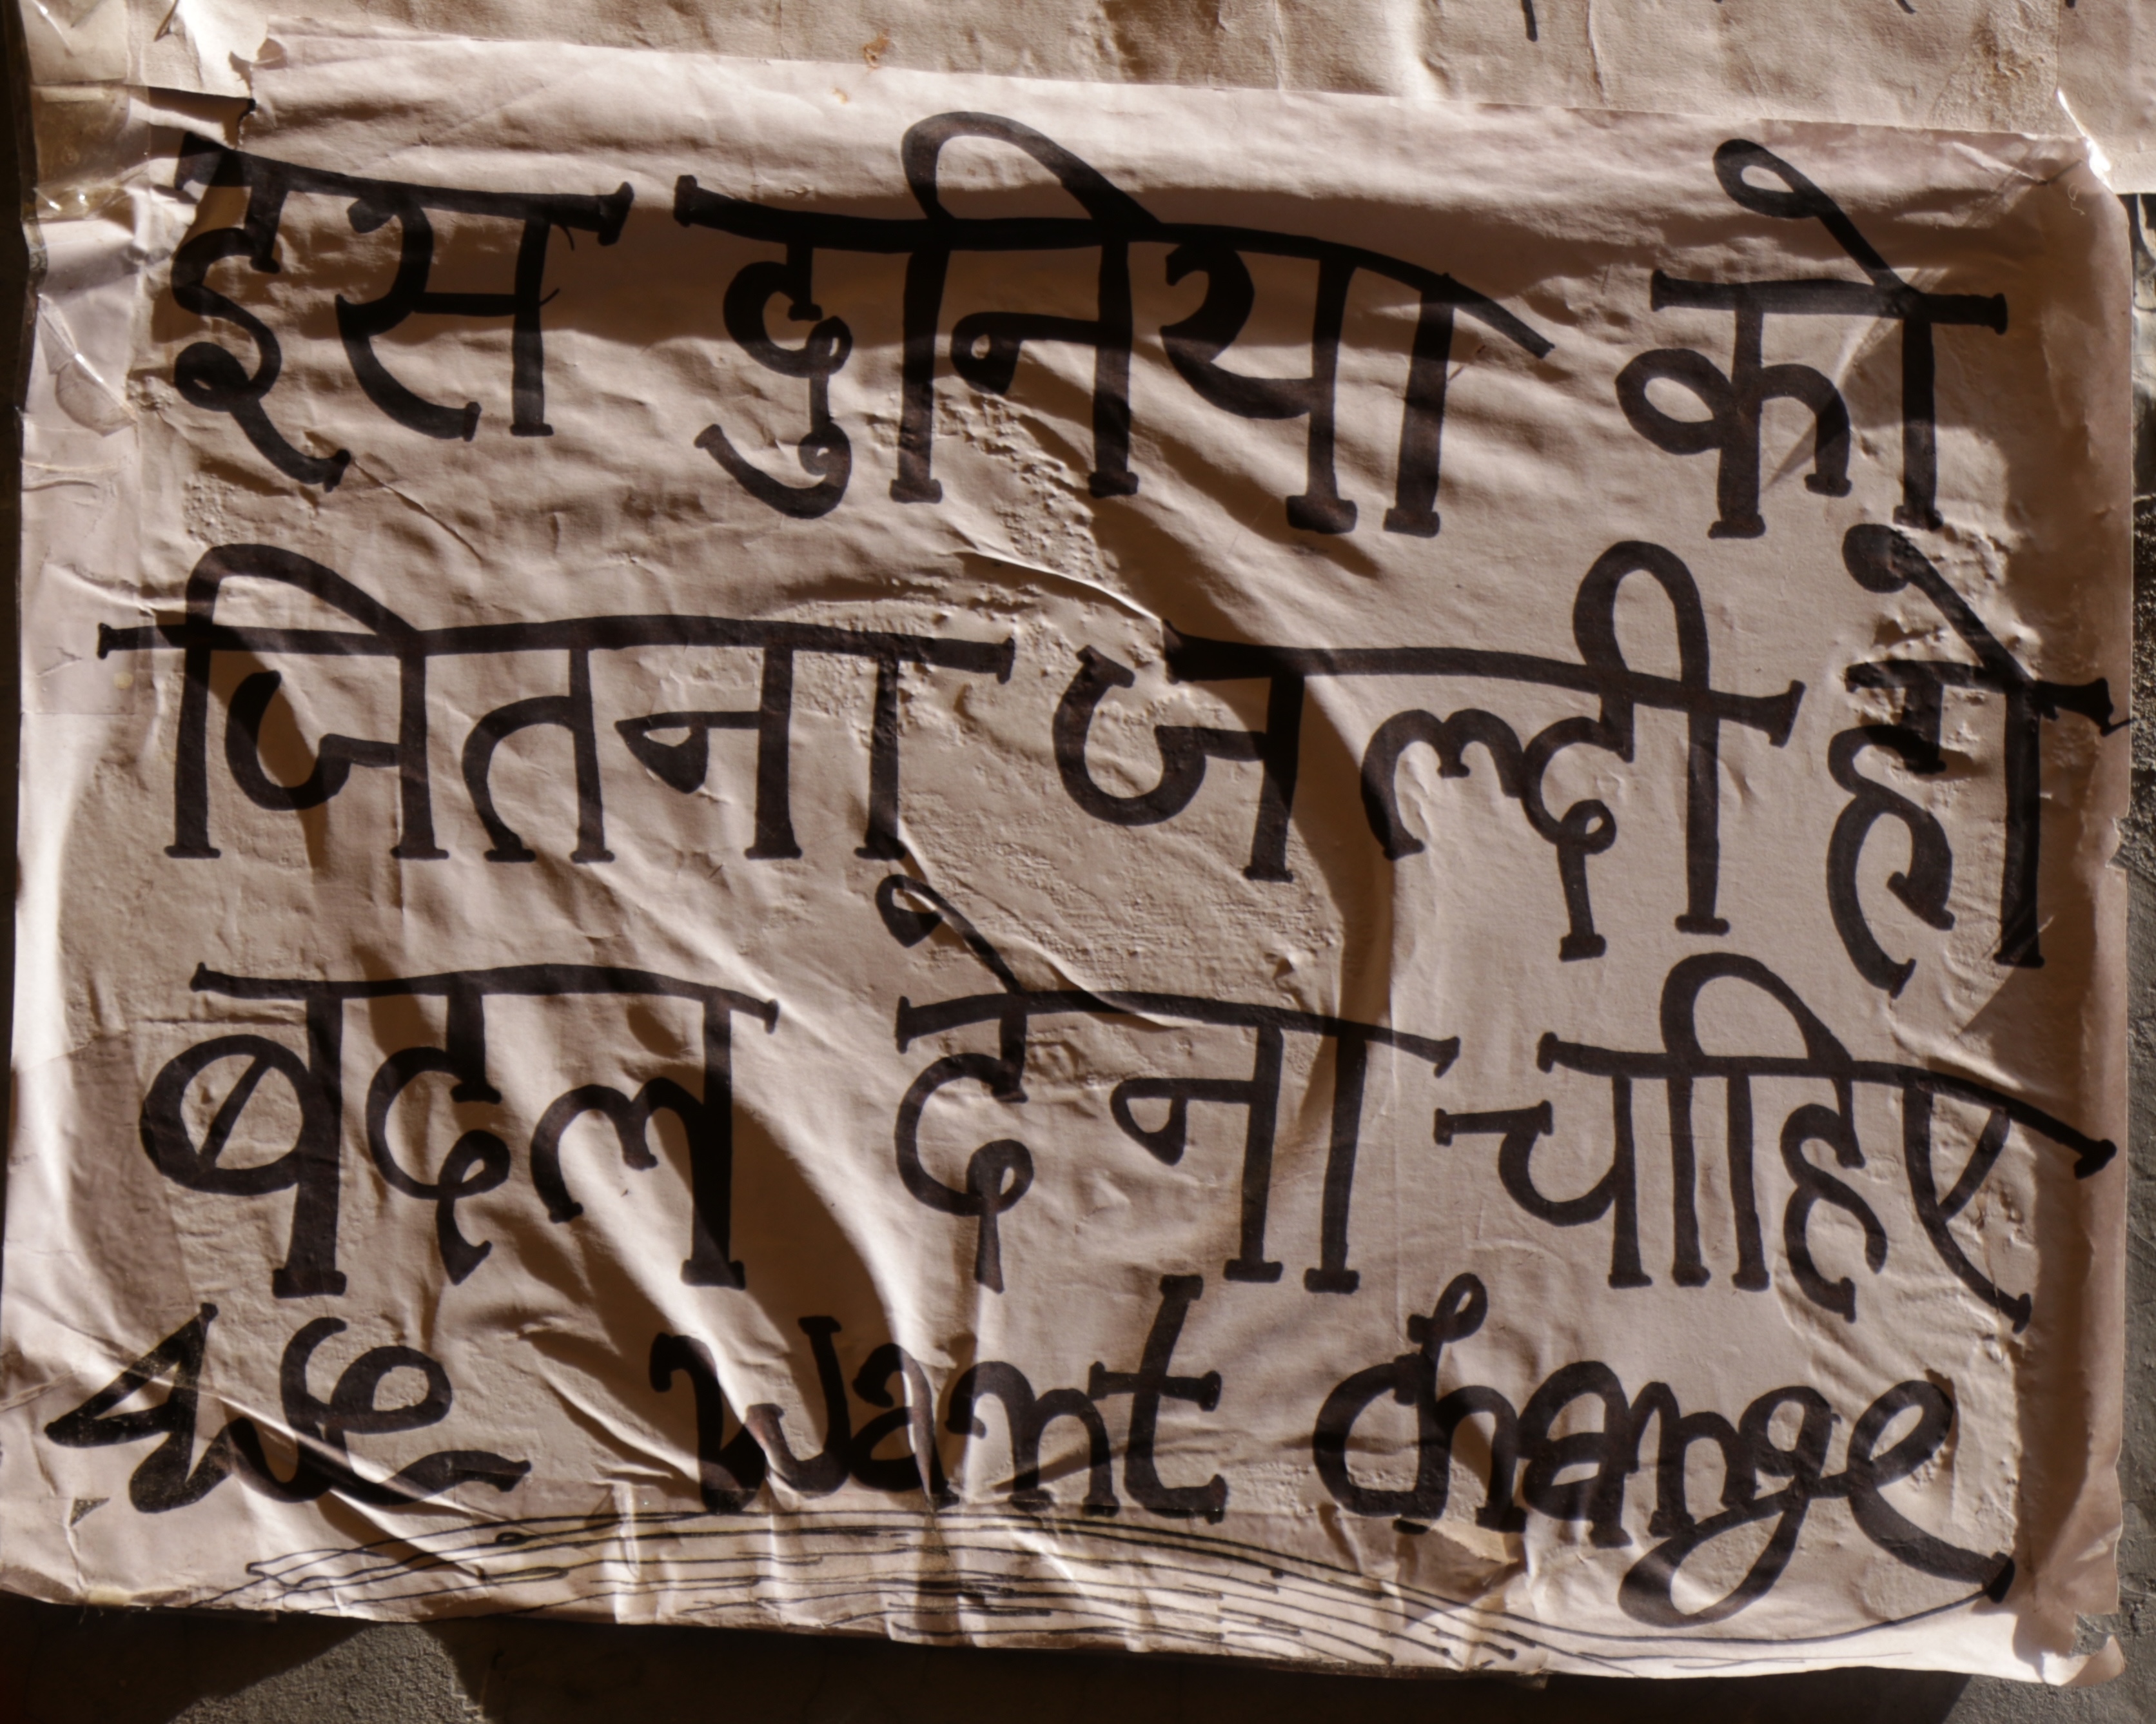 इस दुनिया को
जितना जल्दी हो
बदल देना चाहिए
We want change